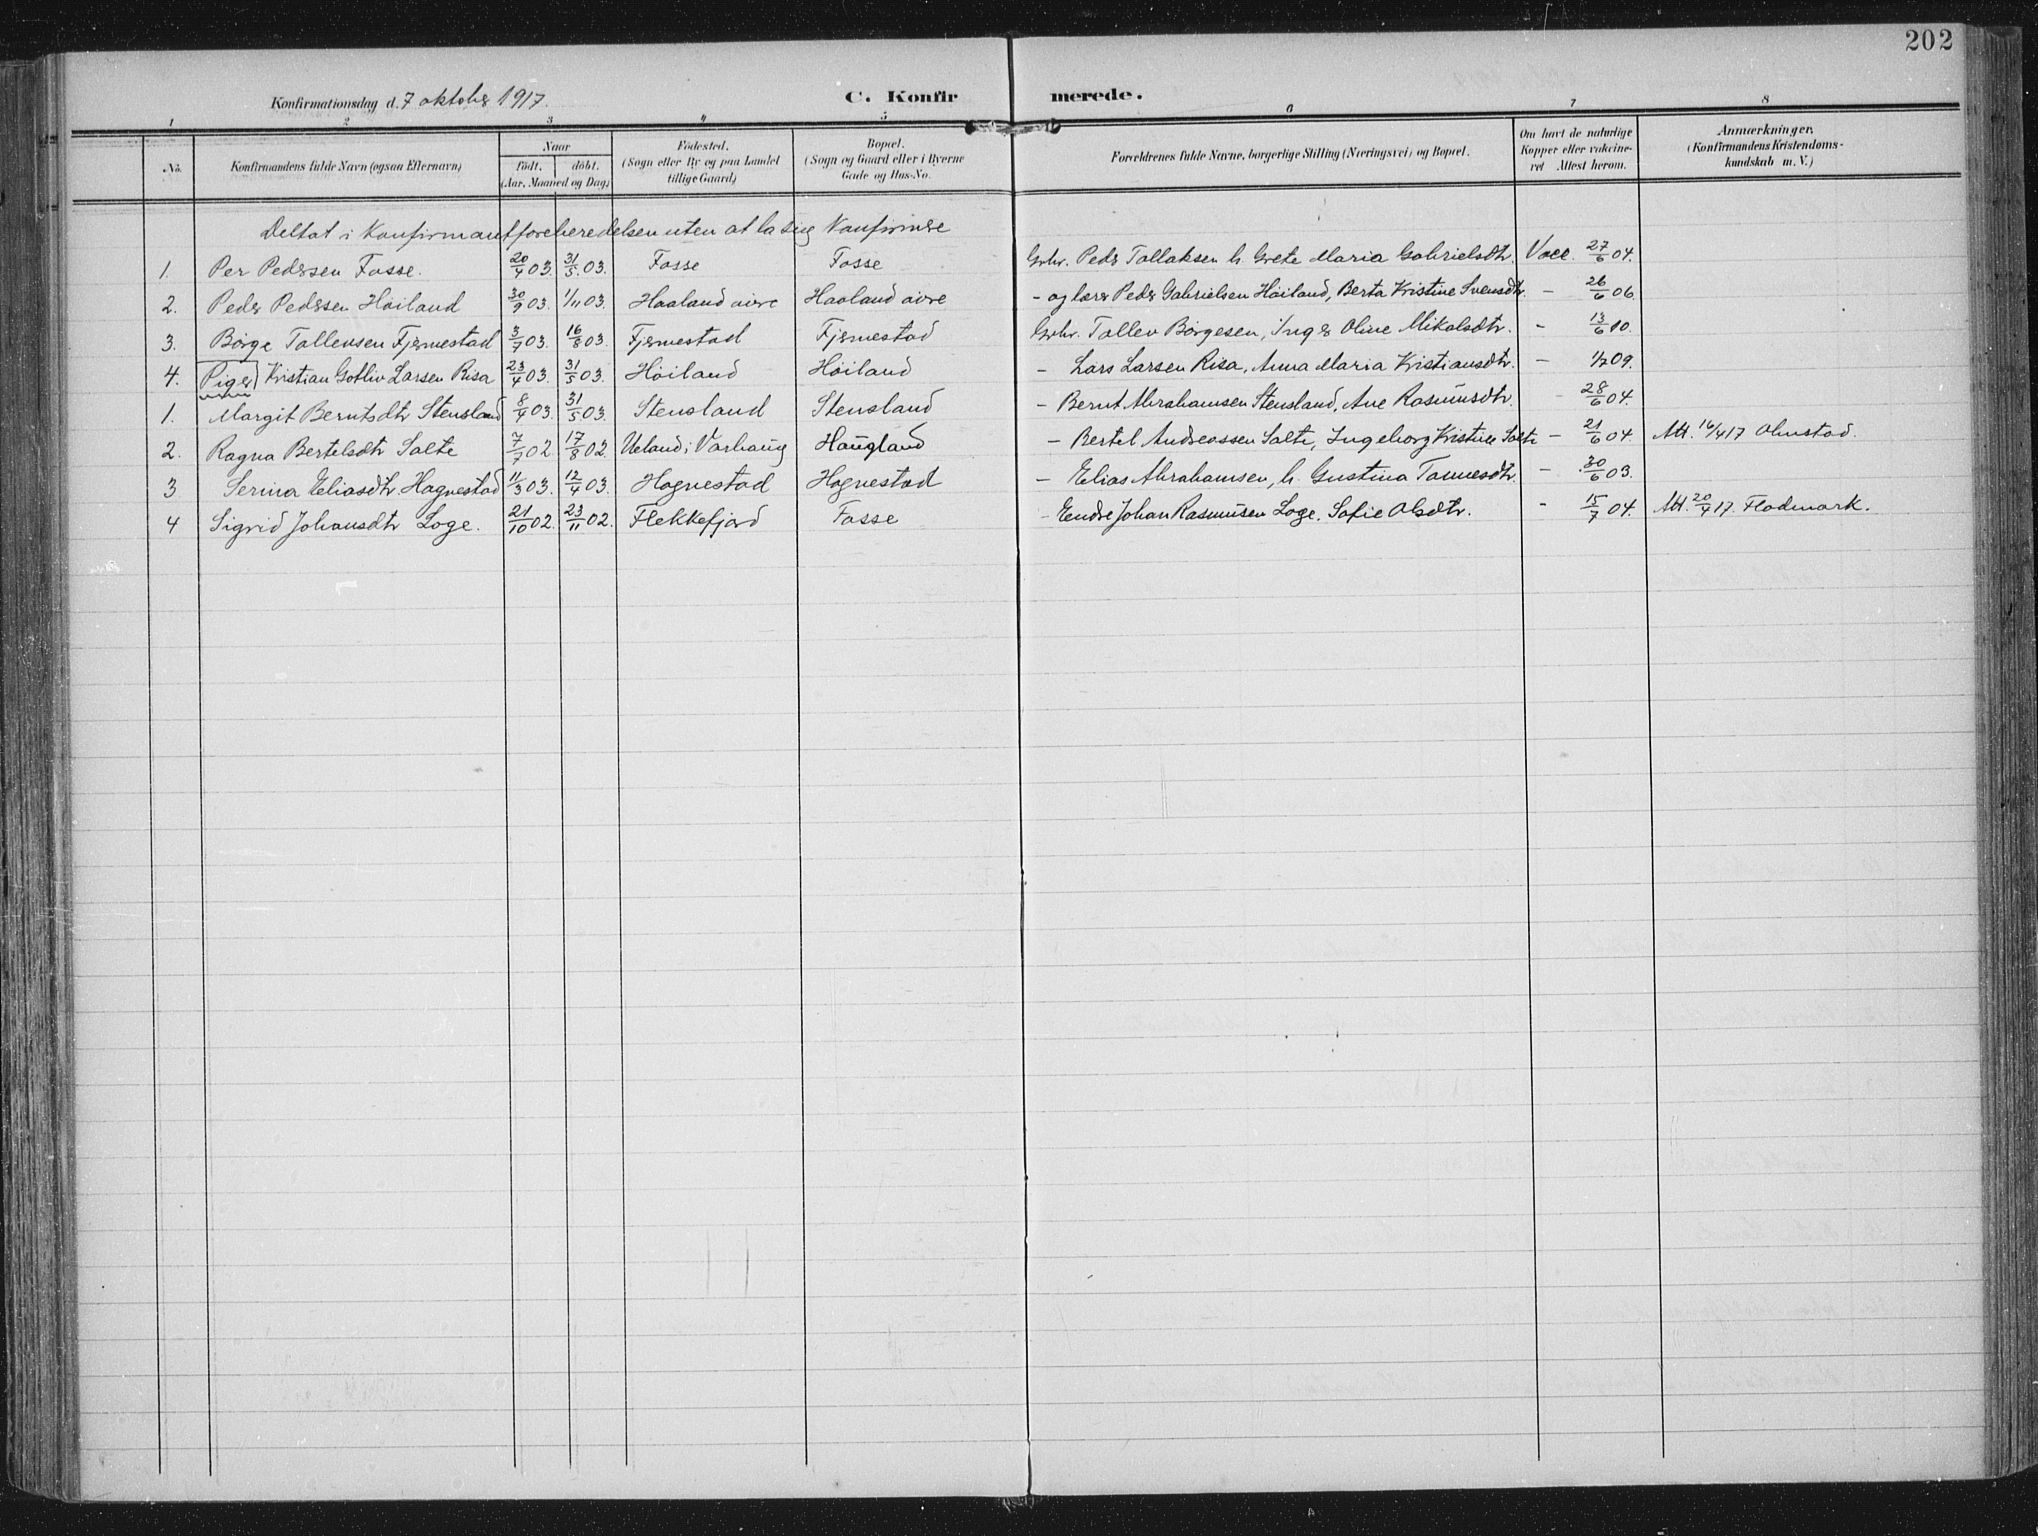 202
Konfirmationsdag d. 7 oktober 1917. C. Konfirmerede.
1 2 3 4 5 6 7 8
No. Konfirmandens fulde Navn (ogsaa Efternavn) Naar födt. döbt. (Aar, Maaned og Dag) Födested. (Sogn eller By og paa Landet tillige Gaard) Bopæl. (Sogn og Gaard eller i Byerne Gade og Hus-No. Forældrenes fulde Navne, borgerlige Stilling (Næringsvei) og Bopæl. Om havt de naturlige Kopper eller vakcineret Attest herom. Anmærkninger. (Konfirmandens Kristendomskundskab m. V.)
Deltat i Konfirmantforberedelsen uten at la sig Konfirmere
1. Per Pedersen Fosse. 20/4 03. 31/5 03. Fosse Fosse Grbr. Peder Tollaksen h. Grete Maria Gabrielsdtr. Vacc. 27/6 04.
2. Peder Pedersen Höiland 30/9 03. 1/11 03. Haaland övre Haaland övre - og lærer Peder Gabrielsen Höiland, Berta Kristine Svensdtr. - 26/6 06.
3. Börge Tollevsen Fjermestad 3/7 03. 16/8 03. Fjermestad Fjermestad Grbr. Tollev Börgesen, Inger Oline Mikalsdtr. - 13/6 10.
4. Kristian Gotliv Larsen Risa 23/4 03. 31/5 03. Höiland Höiland - Lars Larsen Risa, Anna Maria Kristiansdtr. - 1/7 09.
Piger
1. Margit Berntsdtr Stensland 8/4 03. 31/5 03. Stensland Stensland - Bernt Abrahamsen Stensland, Ane Rasmusdtr. - 28/6 04.
2. Ragna Bertelsdtr Salte 7/7 02 17/8 02. Ueland i Varhaug Haugland - Bertel Andreassen Salte, Ingeborg Kristine Salte - 21/6 04. Att. 16/4 17 Olmstad.
3 Serina Eliasdtr Hognestad 11/3 03. 12/4 03. Hognestad Hognestad - Elias Abrahamsen, h. Gustina Tønnesdtr. - 30/6 03.
4 Sigrid Johansdtr Loge. 21/10 02. 23/11 02. Flekkefjord Fosse - Endre Johan Rasmusen Loge. Sofie Olsdtr. - 15/7 04. Att. 20/4 17. Flodmark.